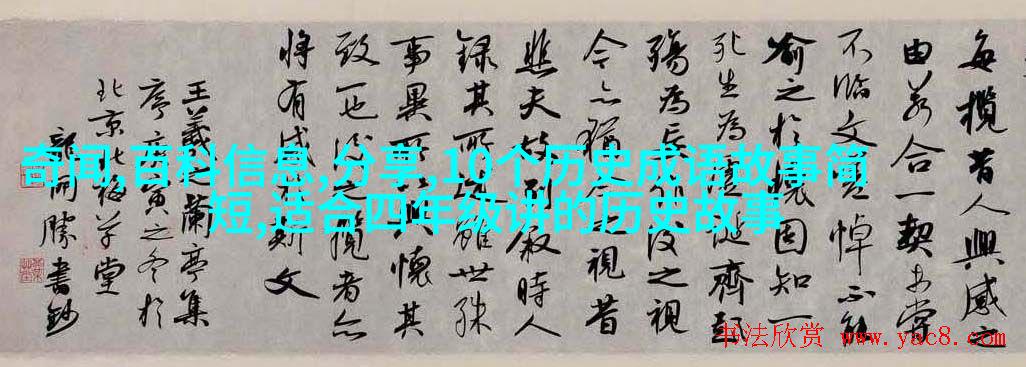 每攬昔人興感之
由若合一契未嘗
不臨文嗟悼不能
喻之於懷固知一
死生為虛誕齊彭
殤為妄作後之視
今亦猶今之視昔
悲夫故列敘時人
錄其所述雖世殊
事異所以興懷其
致一也後之攬者亦
將有感於斯文
王羲之蘭亭集
序庚寅之冬於
北京北草堂
龍開勝書鈔
奇闻,百科信息,分享,10个历史成语故事简
短,适合四年级讲的历史故事
书法欣赏
www.yac8.com